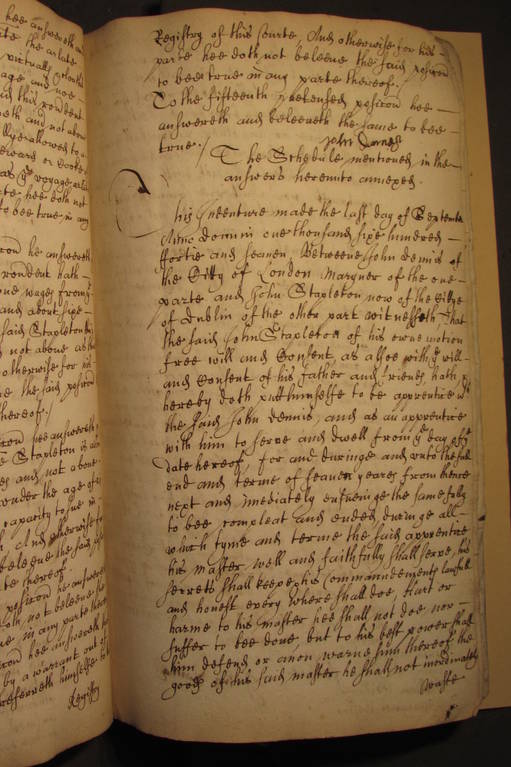 hee answereth and
the arlate
virtually
age and not
and this rendent
oeth and not above
allowed to a
steward or
as ye voyage arlate
te hee doth not
to bee true in any
on he answereth
rondent hath
one wages from ye
and about sixe
said Stapleton
not above as
otherwise for his
the said posicon
hereof.
hee answereth
Stapleton is
es and not above
under the age of
capacity to sue in
And otherwise for
beleeve the said
te thereof.
posicon hee answereth
doth not beleeve the
ue in any parte thereof
con hee answereth
by a warrant out of
referreth himselfe to
Registry
Registry of this Courte, And otherwise for his
parte hee doth not beleeve the said posicon
to bee true in any parte thereof./
To the fifteenth pretensed posicon hee
answereth and beleeveth the same to bee
true./
John Dennis
The Schedule mentioned in the
answers hereunto annexed.
This Indenture made the last day of September
Anno domini one thousand sixe hundred
fortie and seaven, Betweene John Dennis of
the Citty of London Maryner of the one
parte and John Stapleton now of the Citye
of Dublin of the other part witnesseth, That
the said John Stapleton of his owne motion
free will and Consent, as alsoe with ye will
and Consent of his father and friends hath &
hereby doth putt himselfe to be apprentice wth
the said John Dennis, and as an apprentice
with him to serve and dwell from ye day of ye
date hereof, for and duringe and unto the full
end and terme of seaven yeares from thence
next and imediately ensueinge the same fully
to bee compleat and ended, duringe all
which tyme and terme the said apprentice
his master well and faithfully shall serve, his
secrets shall keepe, his Commaundements lawfull
and honest every where shall doe, Hurt or
harme to his master hee shall not doe nor
suffer to bee done, but to his best power shall
him defend, or anon, warne him thereof. the
goods of his said master he shall not inordinately
waste